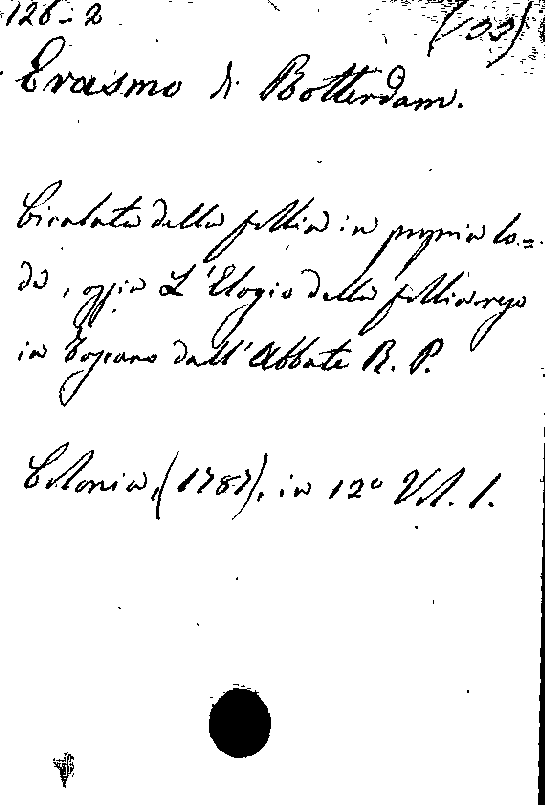 126-2 (33)
Erasmo di Rotterdam.
Cicalata della follia in propria lo=
de, ossia L'Elogio della follia reso
in Toscano dall'Abbate R. P.
Colonia, (1787), in 12° Vol. 1.